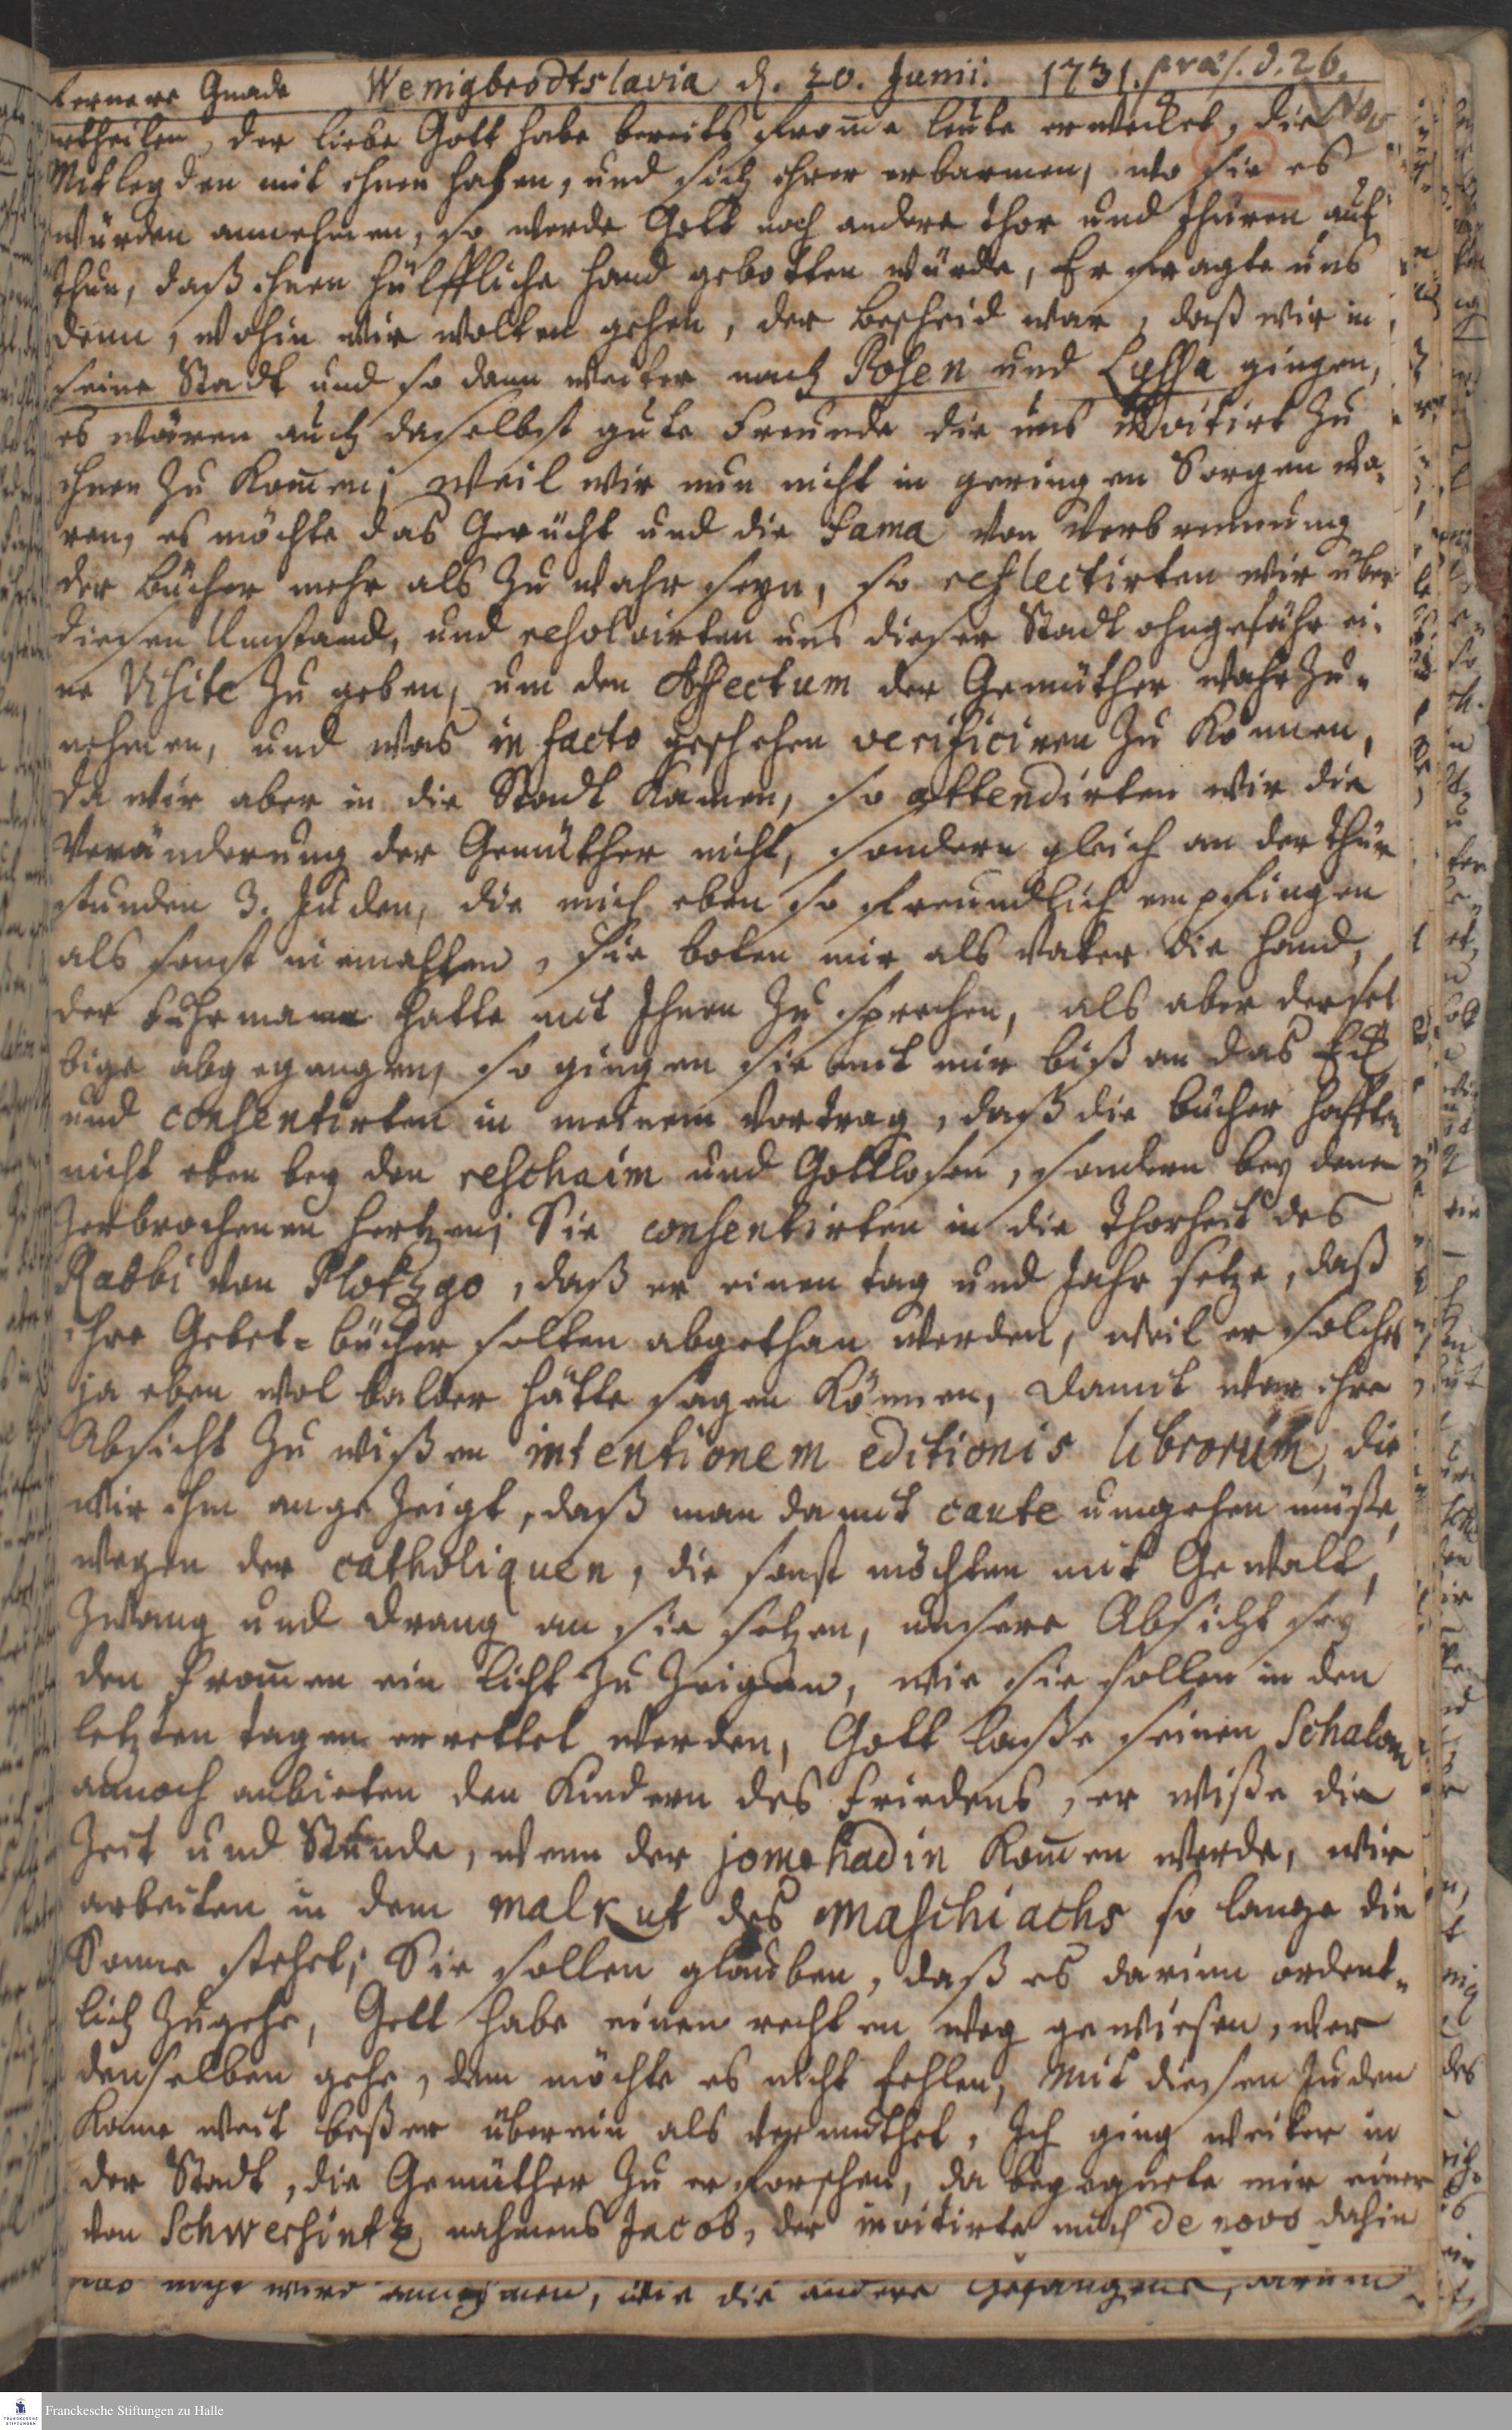 fernere Gnade Wenigbrodtslavia d. 20. Junii. 1731. præs. d. 26. Nov
ertheilen, der liebe Gott habe bereits fromme leute erwecket, die
Mitleyden mit ihnen haben, und sich ihrer erbarmen, wo sie es
würden annehmen, so werde Gott noch andere thor und thüren auf
thun, daß ihnen hülffliche hand gebotten würde, Er fragte uns
denn, wohin wir wolten gehen, der bescheid war, daß wir in
seine Stadt und so dann weiter nach Posen und Lyssa gingen,
es wären auch daselbst gute Freunde die uns invitirt zu
ihnen zu kommen; weil wir nun nicht in geringen Sorgen wa-
ren, es möchte das Gerücht und die fama von Verbrennung
der bücher mehr als zu wahr seyn, so reflectirten wir über
diesen Umstand, und resolvirten uns dieser Stadt ohngefähr ei-
ne Visite zu geben, um den Affectum der Gemüther wahrzu-
nehmen, und was in facto geschehen verificiren zu können,
da wir aber in die Stadt kamen, so attendirten wir die
Veränderung der Gemüther nicht, sondern gleich an der thür
stunden 3. Juden, die mich eben so freundlich empfingen
als sonst niemahlen, sie boten mir als Vater die hand,
der fuhrmann hatte mit Ihnen zu sprechen, als aber dersel
bige abgegangen, so gingen sie mit mir biß an das Eck
und consentirten in meinem Vortrag, daß die bücher hafften
nicht eben bey den reschaim und Gottlosen, sondern bey denen
zerbrochenen hertzen; Sie consentirten in die thorheit des
Rabbi von Plotzgo, daß er einen tag und Jahr setze, daß
ihre Gebet-bücher solten abgethan werden, weil er solches
ja eben wol balder hätte sagen können, damit war ihre
Absicht zu wißen intentionem editionis librorum, die
wir ihm angezeigt, daß man damit caute umgehen müße,
wegen der catholiquen, die sonst möchten mit Gewalt,
Zwang und drang an sie setzen, unsere Absicht sey
den frommen ein licht zu zeigen, wie sie sollen in den
letzten tagen errettet werden, Gott laße seinen Schalom
annoch anbieten den Kindern des Friedens, er wiße die
Zeit und Stunde, wenn der jom hadin kommen werde, wir
arbeiten in dem malkut des Maschiachs so lange die
Sonne stehet; Sie sollen glauben, daß es darinn ordent-
lich zugehe, Gott habe einen rechten weg gewiesen, wer
denselben gehe, dem möchte es nicht fehlen, mit diesen Juden
kame weit beßer überein als vermuthet, Ich ging weiter in
der Stadt, die Gemüther zu erforschen, da begegnete mir einer
von Schwersintz nahmens Jacob, der invitirte mich de novo dahin
nicht wird annehmen, wie die andere Gefangene, darum
Franckesche Stiftungen zu Halle